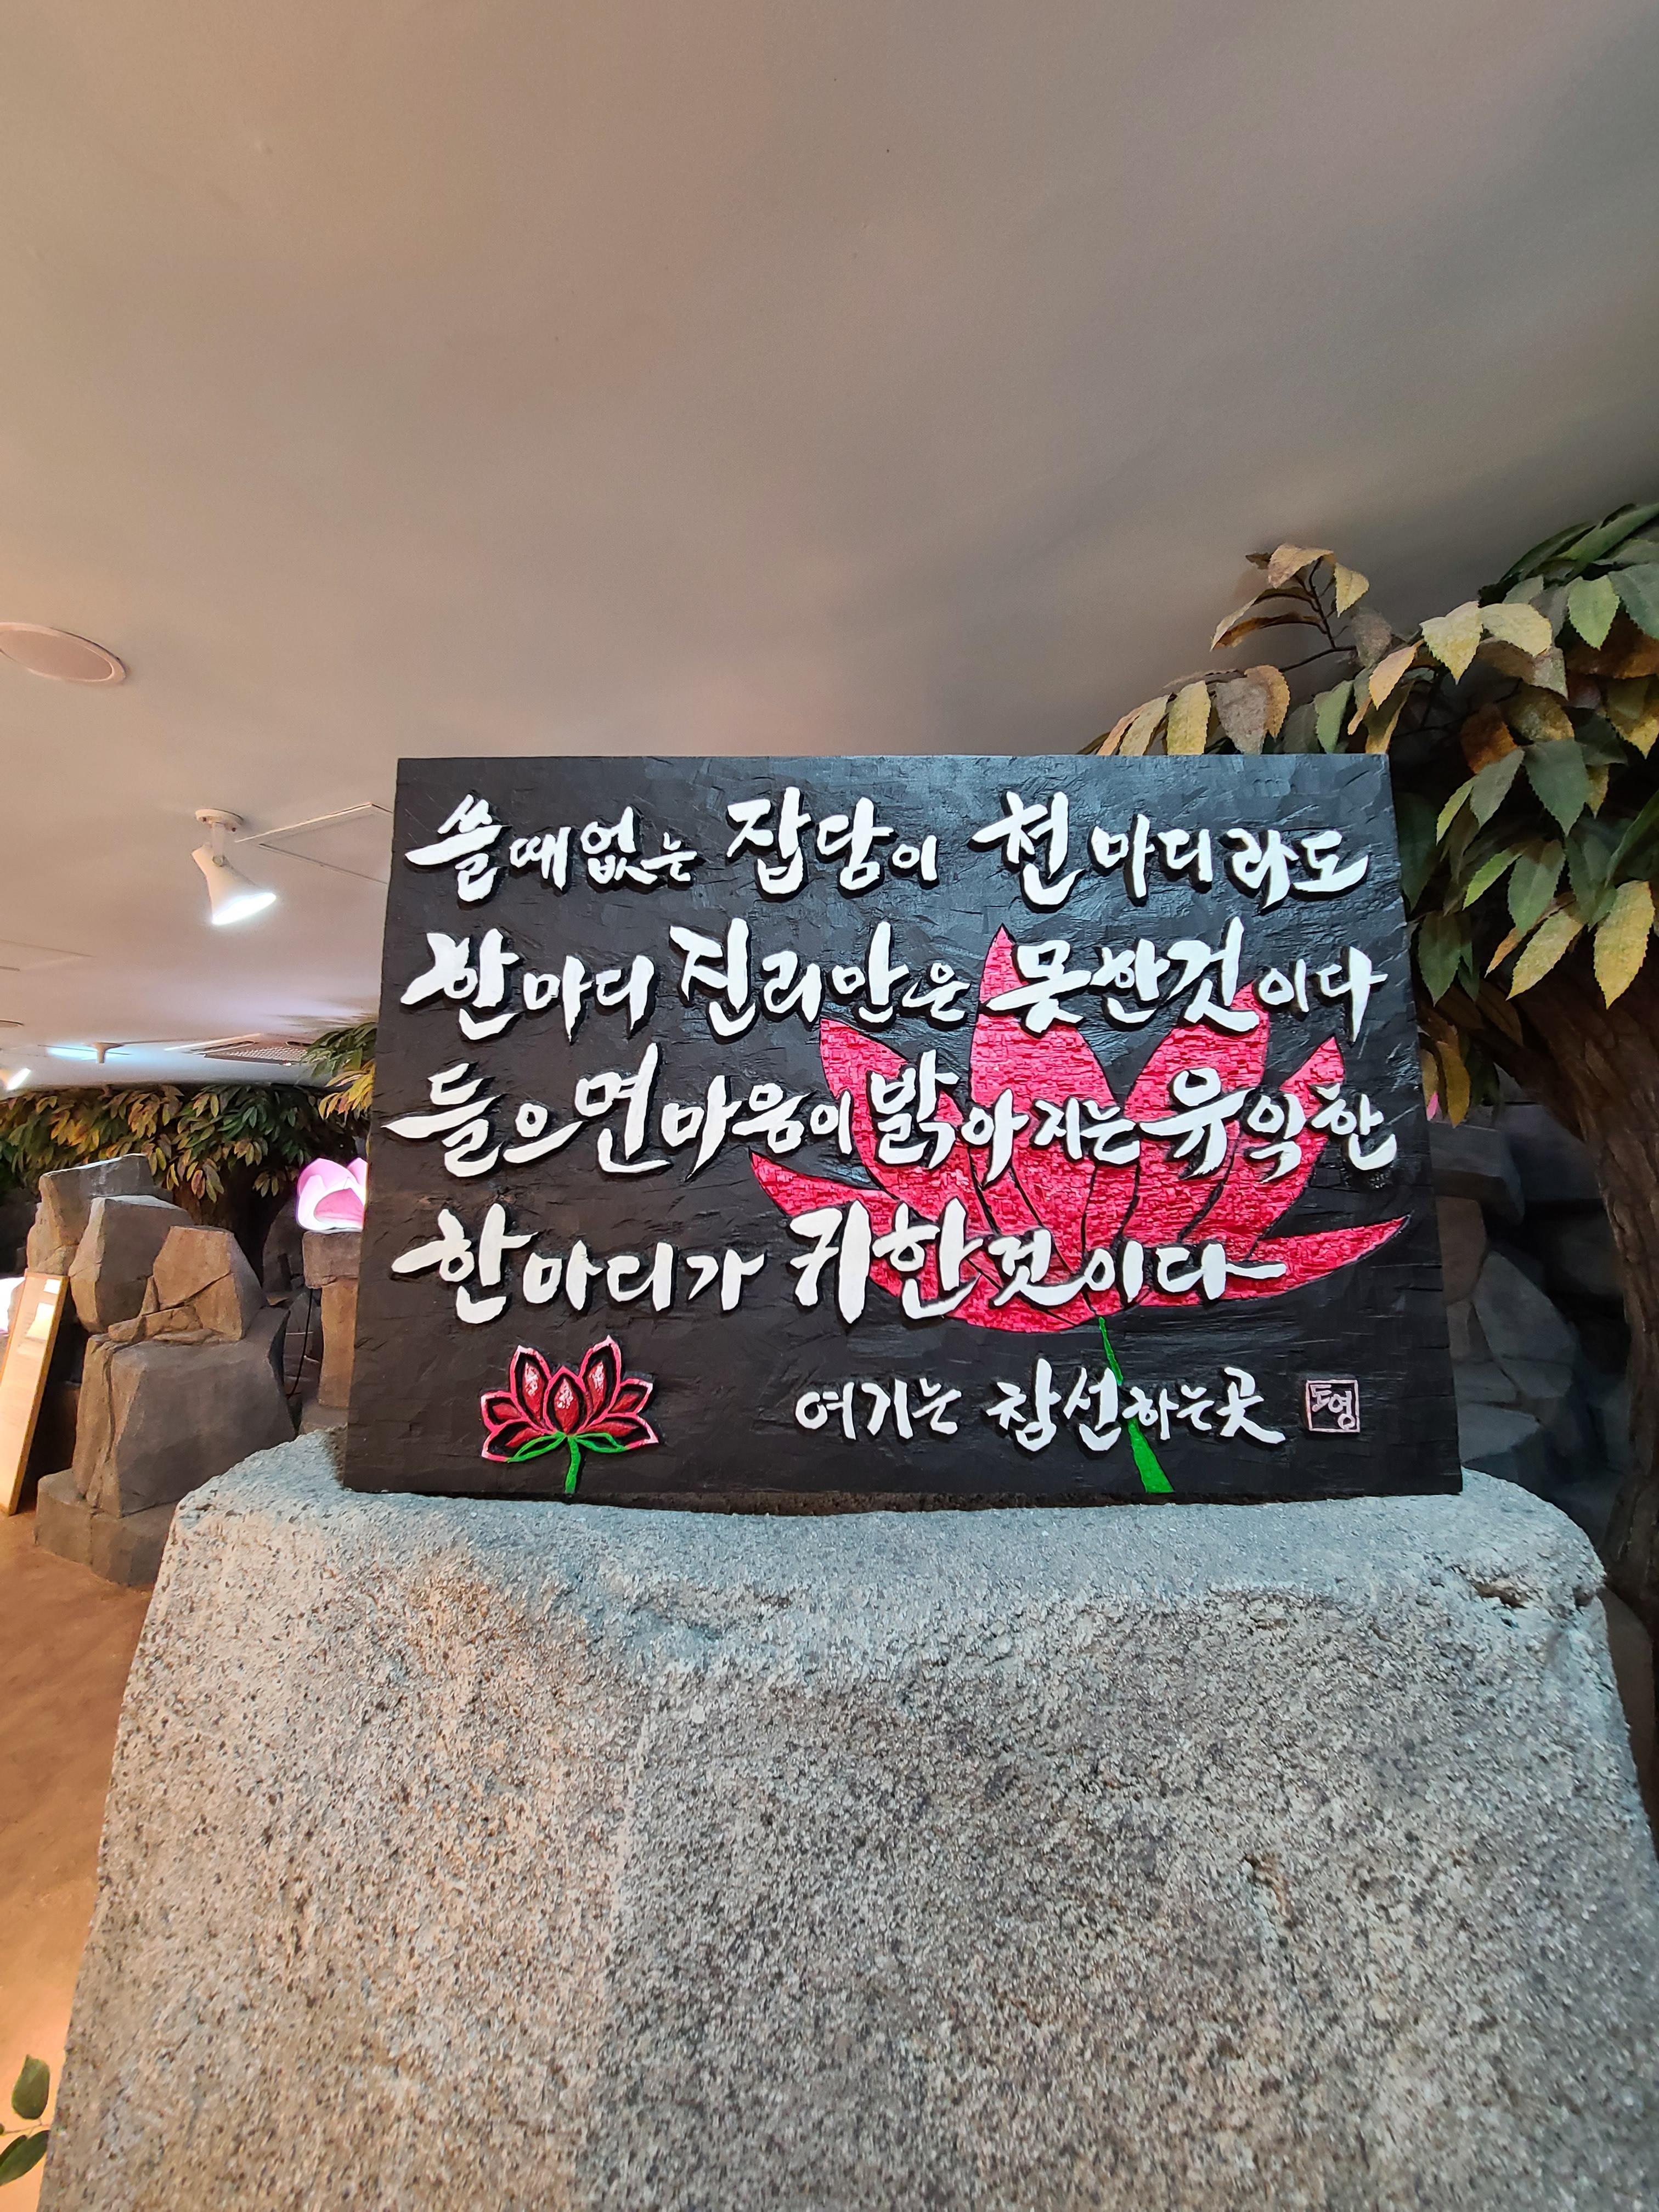 쓸때없는 잡담이 천마디라도
한마디 진리만은 못한것이다
들으면 마음이 밝아지는 유익한
한마디가 귀한것이다
여기는 참선하는곳
도영